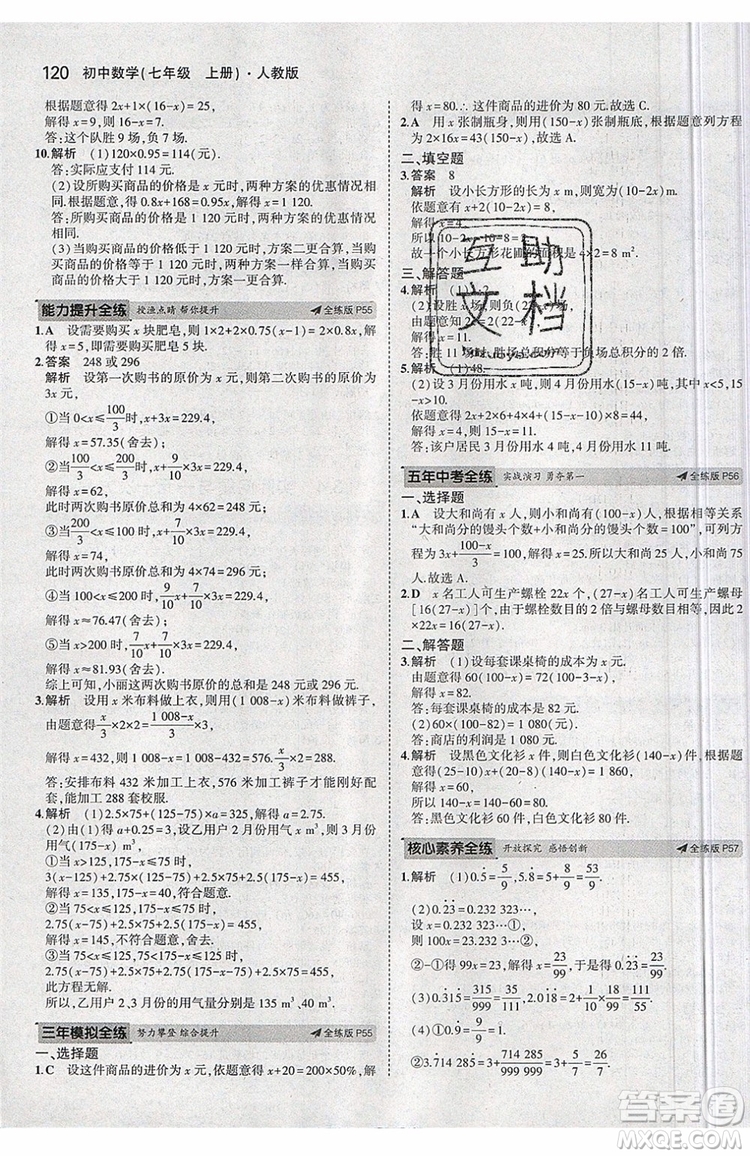 120 初中数学(七年级 上册)·人教版
根据题意得 2x+1×(16-x)=25,
解得 x=9,则 16-x=7.
答:这个队胜 9 场,负 7 场.
10.解析 (1)120×0.95=114(元).
答:实际应支付 114 元.
(2)设所购买商品的价格是 x 元时,两种方案的优惠情况相
同,根据题意得 0.8x+168=0.95x,解得 x=1 120.
答:所购买商品的价格是 1 120 元时,两种方案的优惠情况
相同.
(3)当购买商品的价格低于 1 120 元时,方案二更合算,当购
买商品的价格大于 1 120 元时,方案一更合算.
能力提升全练 全练版 P55
1.A 设需要购买 x 块肥皂,则 1×2+2×0.75(x-1)=2×0.8x,解
得 x=5,即至少需要购买 5 块肥皂.
2.答案 248 或 296
解析 设第一次购书的原价为 x 元,则第二次购书的原价为
3x 元,
①当 0<x≤100/3 时,x+3x=229.4,
解得 x=57.35(舍去);
②当100/3<x≤200/3时,x+9/10×3x=229.4,
解得 x=62,
此时两次购书原价总和为 4x=4×62=248 元;
③当200/3<x≤100 时,x+7/10×3x=229.4,
解得 x=74,
此时两次购书原价总和为 4x=4×74=296 元;
④当 100<x≤200 时,9/10x+7/10×3x=229.4,
解得 x≈76.47(舍去);
⑤当 x>200 时,7/10x+7/10×3x=229.4,
解得 x≈81.93(舍去).
综上可知,小丽这两次购书原价的总和是 248 或 296 元.
3.解析 设用 x 米布料做上衣,则用(1 008-x)米布料做裤子,
由题意得x/3×2×2=(1 008-x)/3×2×3,
解得 x=576,则 1 008-x=1 008-576=432,432/3×2=288,
答:安排布料 576 米加工上衣、432 米加工裤子才能恰好配
套,能加工 288 套校服.
4.解析 (1)2.5×75+(125-75)×a=325,解得 a=2.75.
(2)由(1)得 a=2.75,设乙用户 2 月份用气 x m³,则 3 月份
用气(175-x)m³.
①当 x>125,175-x≤75 时,
3(x-125)+2.5×75+2.75×(125-75)+2.5×(175-x)=455,
解得 x=135,175-135=40,符合题意;
②当 75<x≤125,175-x≤75 时,
2.75(x-75)+2.5×75+2.5×(175-x)=455,
解得 x=145,不符合题意,舍去;
③当 75<x≤125,75<175-x≤125 时,
2.75(x-75)+2.5×75+2.75(175-x-75)+2.5×75=455,
此方程无解.
所以,乙用户 2、3 月份的用气量分别是 135 m³、40 m³.
三年模拟全练 努力攀登 综合提升 全练版 P55
一、选择题
1.C 设这件商品的进价为 x 元,依题意得 x+20=200×50%,解
得 x=80.∴这件商品的进价为 80 元.故选 C.
2.A 用 x 张制瓶身,则用(150-x)张制瓶底,根据题意列方程
为 2×16x=43(150-x),故选 A.
二、填空题
3.答案 8
解析 设小长方形的长为 x m,则宽为(10-2x)m.
依题意有 x+2(10-2x)=8,
解得 x=4.
所以 10-2x=10-8=2.
故一个小长方形花圃的面积是4×2=8 m².
三、解答题
5.解析 (1)48.
(2)设 3 月份用水 x 吨,则 4 月份用水(15-x)吨,其中 x<5,15-
x>10,
依题意得 2x+2×6+4×4+(15-x-10)×8=44,
解得 x=4,15-x=11.
答:该户居民 3 月份用水 4 吨,4 月份用水 11 吨.
五年中考全练 实战演习 勇夺第一 全练版 P56
一、选择题
1.A 设大和尚有 x 人,则小和尚有(100-x)人,根据相等关系
“大和尚分的馒头个数+小和尚分的馒头个数=100”,可列方
程为 3x+(100-x)/3=100,解得 x=25,所以大和尚 25 人,小和尚
75 人.故选 A.
2.D x 名工人可生产螺栓 22x 个,(27-x)名工人可生产螺母
[16(27-x)]个,由于螺栓数目的 2 倍与螺母数目相等,因此 2
×22x=16(27-x).
二、解答题
3.解析 (1)设每套课桌椅的成本为 x 元.
由题意得 60(100-x)=72(100-3-x).
解得 x=82.
答:每套课桌椅的成本为 82 元.
(2)60×(100-82)=1 080(元).
答:商店的利润是 1 080 元.
4.解析 设黑色文化衫 x 件,则白色文化衫(140-x)件,由题意
得(25-10)x+(20-8)(140-x)=1 860,
解得 x=60,
所以 140-x=80.
答:黑色文化衫 60 件,白色文化衫 80 件.
核心素养全练 开放探究 感悟创新 全练版 P57
互助
文档
答案圈
MXQE.COM